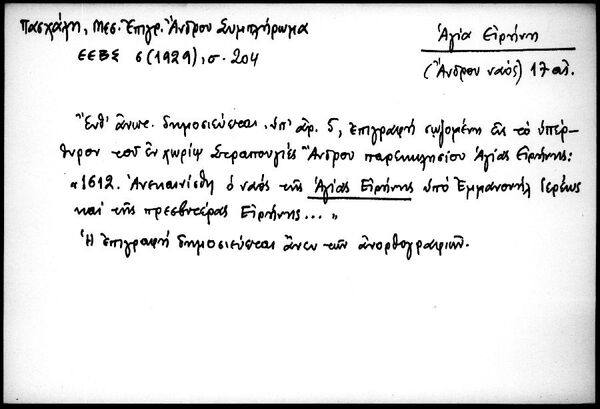 Πασχάλη, Μεσ. Ἐπιγρ. Ἄνδρου Συμπλήρωμα
ΕΕΒΣ 6 (1929), σ. 204
Ἁγία Εἰρήνη
(Ἄνδρου ναός) 17 αἰ.
Ἔνθ' ἀνωτ. δημοσιεύεται ὑπ' ἀρ. 5, ἐπιγραφή σῳζομένη εἰς τὸ ὑπέρ-
θυρον τοῦ ἐν χωρίῳ Στραπουργιές Ἄνδρου παρεκκλησίου Ἁγίας Εἰρήνης:
«1612. Ἀνεκαινίσθη ὁ ναός τῆς Ἁγίας Εἰρήνης ὑπό Ἐμμανουήλ Ἱερέως
καί τῆς πρεσβυτέρας Εἰρήνης... »
Ἡ ἐπιγραφή δημοσιεύεται ἄνευ τῶν ἀνορθογραφιῶν.